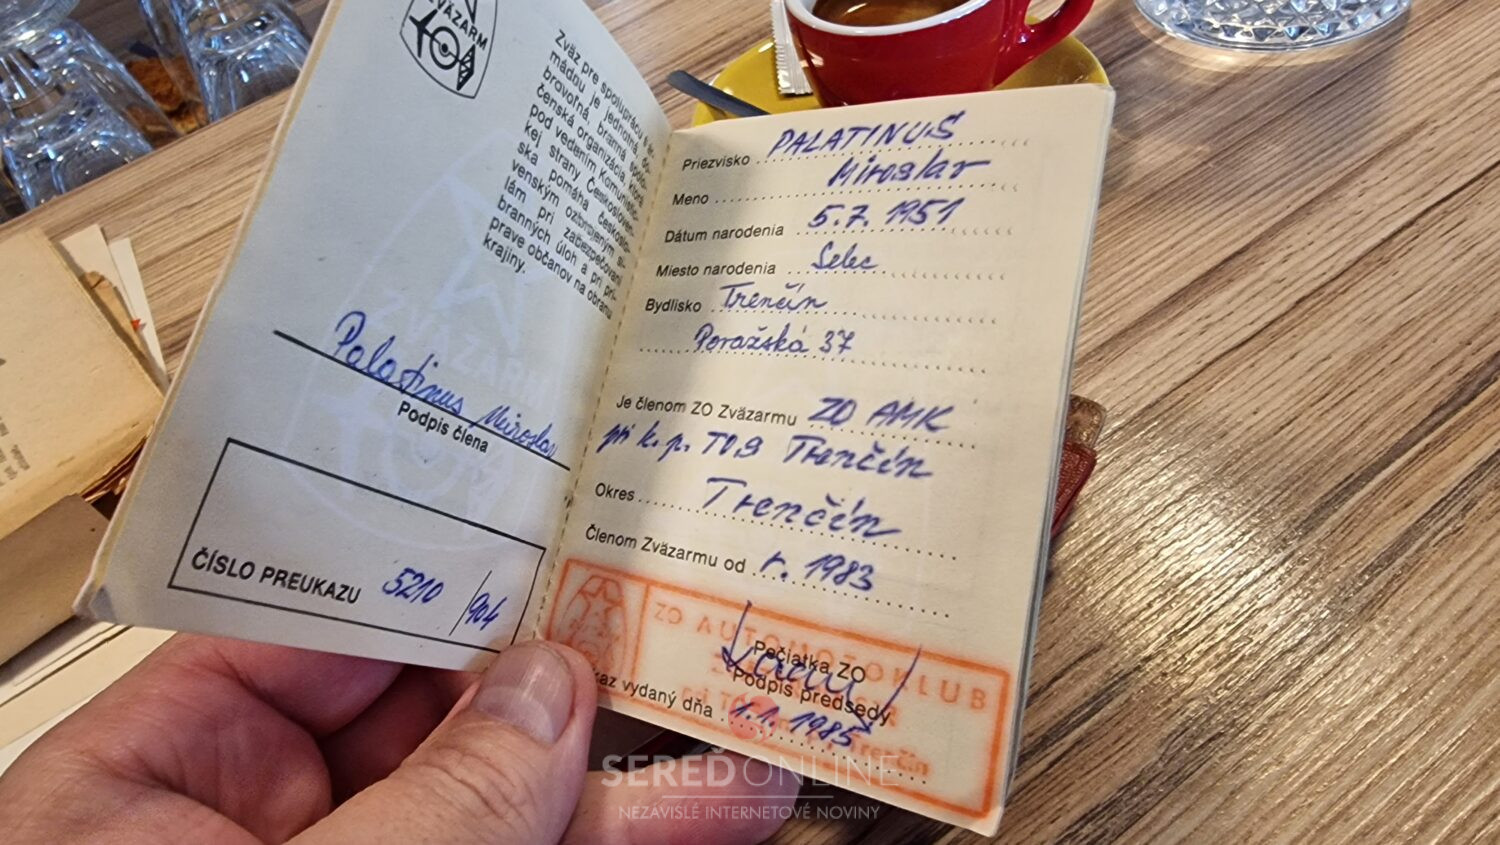 ZVÄZARM
Zväz pre spoluprácu s ar-
mádou je jednotná, do-
brovoľná, branná spolo-
čenská organizácia, ktorá
pod vedením Komunistic-
kej strany Českosloven-
ska pomáha českoslo-
venským ozbrojeným si-
lám pri zabezpečovaní
branných úloh a pri prí-
prave občanov na obranu
krajiny.
ZVÄZARM
Palatinus Miroslav
Podpis člena
ČÍSLO PREUKAZU 5210/904
Priezvisko PALATINUS
Meno Miroslav
Dátum narodenia 5.7. 1951
Miesto narodenia Selec
Bydlisko Trenčín
Považská 37
Je členom ZO Zväzarmu ZO AMK
pri k. p. TOS Trenčín
Okres Trenčín
Členom Zväzarmu od r. 1983
ZO AUTOMOTOKLUB
Pečiatka ZO
Podpis predsedu
kaz vydaný dňa 1.1. 1985
Trenčín
SEREĎONLINE
NEZÁVISLÉ INTERNETOVÉ NOVINY